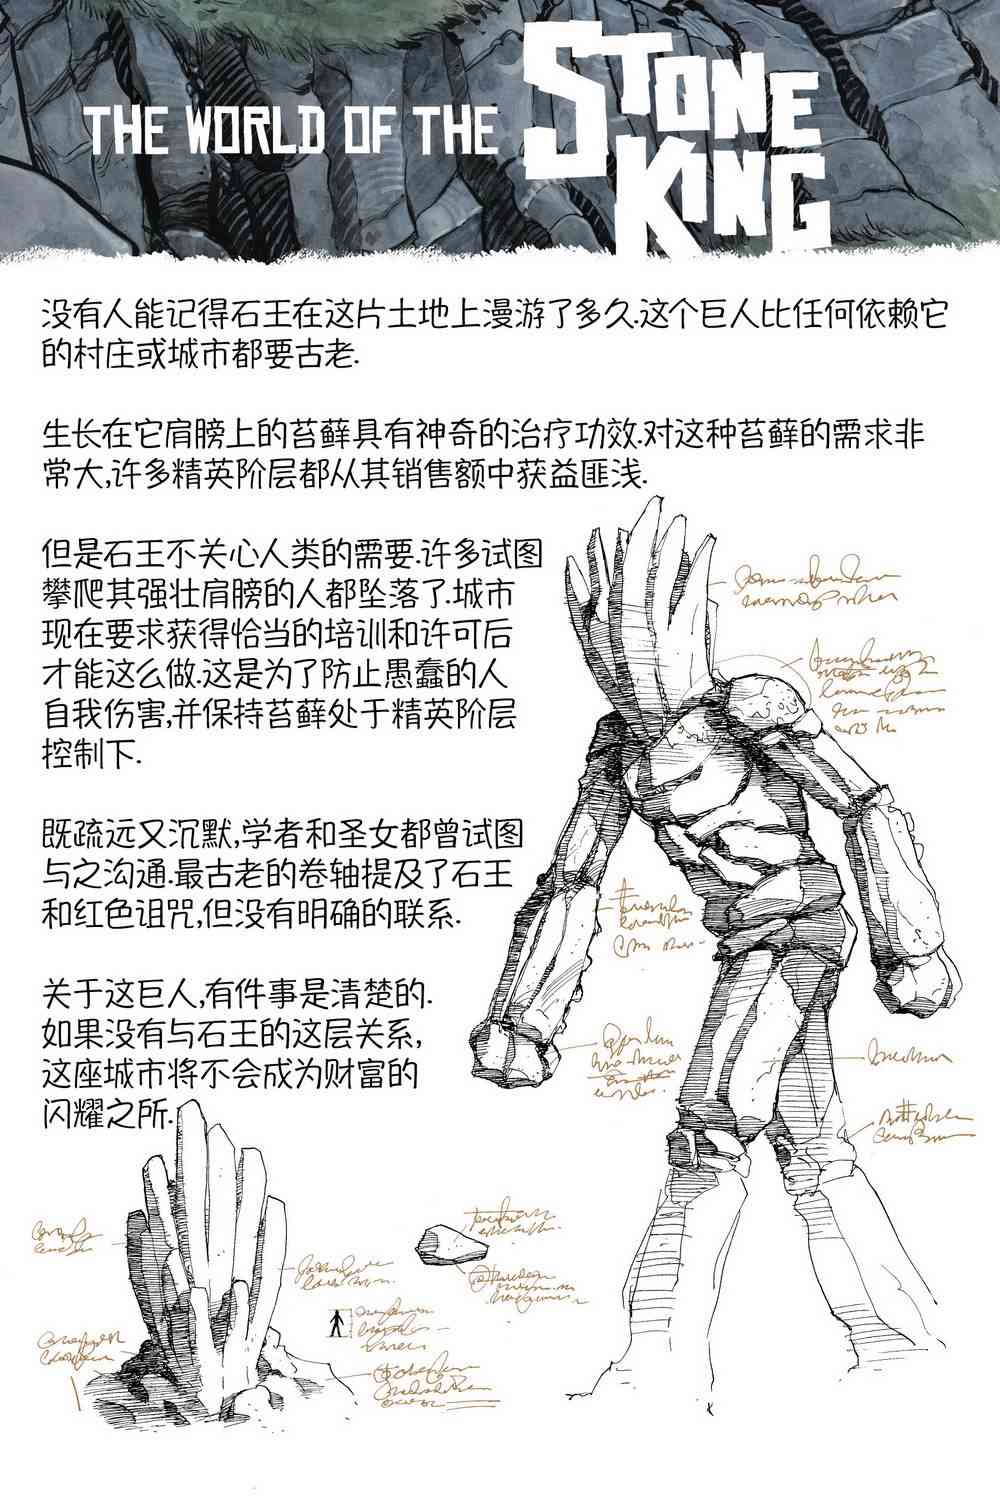 THE WORLD OF THE STONE KING
没有人能记得石王在这片土地上漫游了多久.这个巨人比任何依赖它
的村庄或城市都要古老.
生长在它肩膀上的苔藓具有神奇的治疗功效.对这种苔藓的需求非
常大,许多精英阶层都从其销售额中获益匪浅.
但是石王不关心人类的需要.许多试图
攀爬其强壮肩膀的人都坠落了.城市
现在要求获得恰当的培训和许可后
才能这么做.这是为了防止愚蠢的人
自我伤害,并保持苔藓处于精英阶层
控制下.
既疏远又沉默,学者和圣女都曾试图
与之沟通.最古老的卷轴提及了石王
和红色诅咒,但没有明确的联系.
关于这巨人,有件事是清楚的.
如果没有与石王的这层关系,
这座城市将不会成为财富的
闪耀之所.